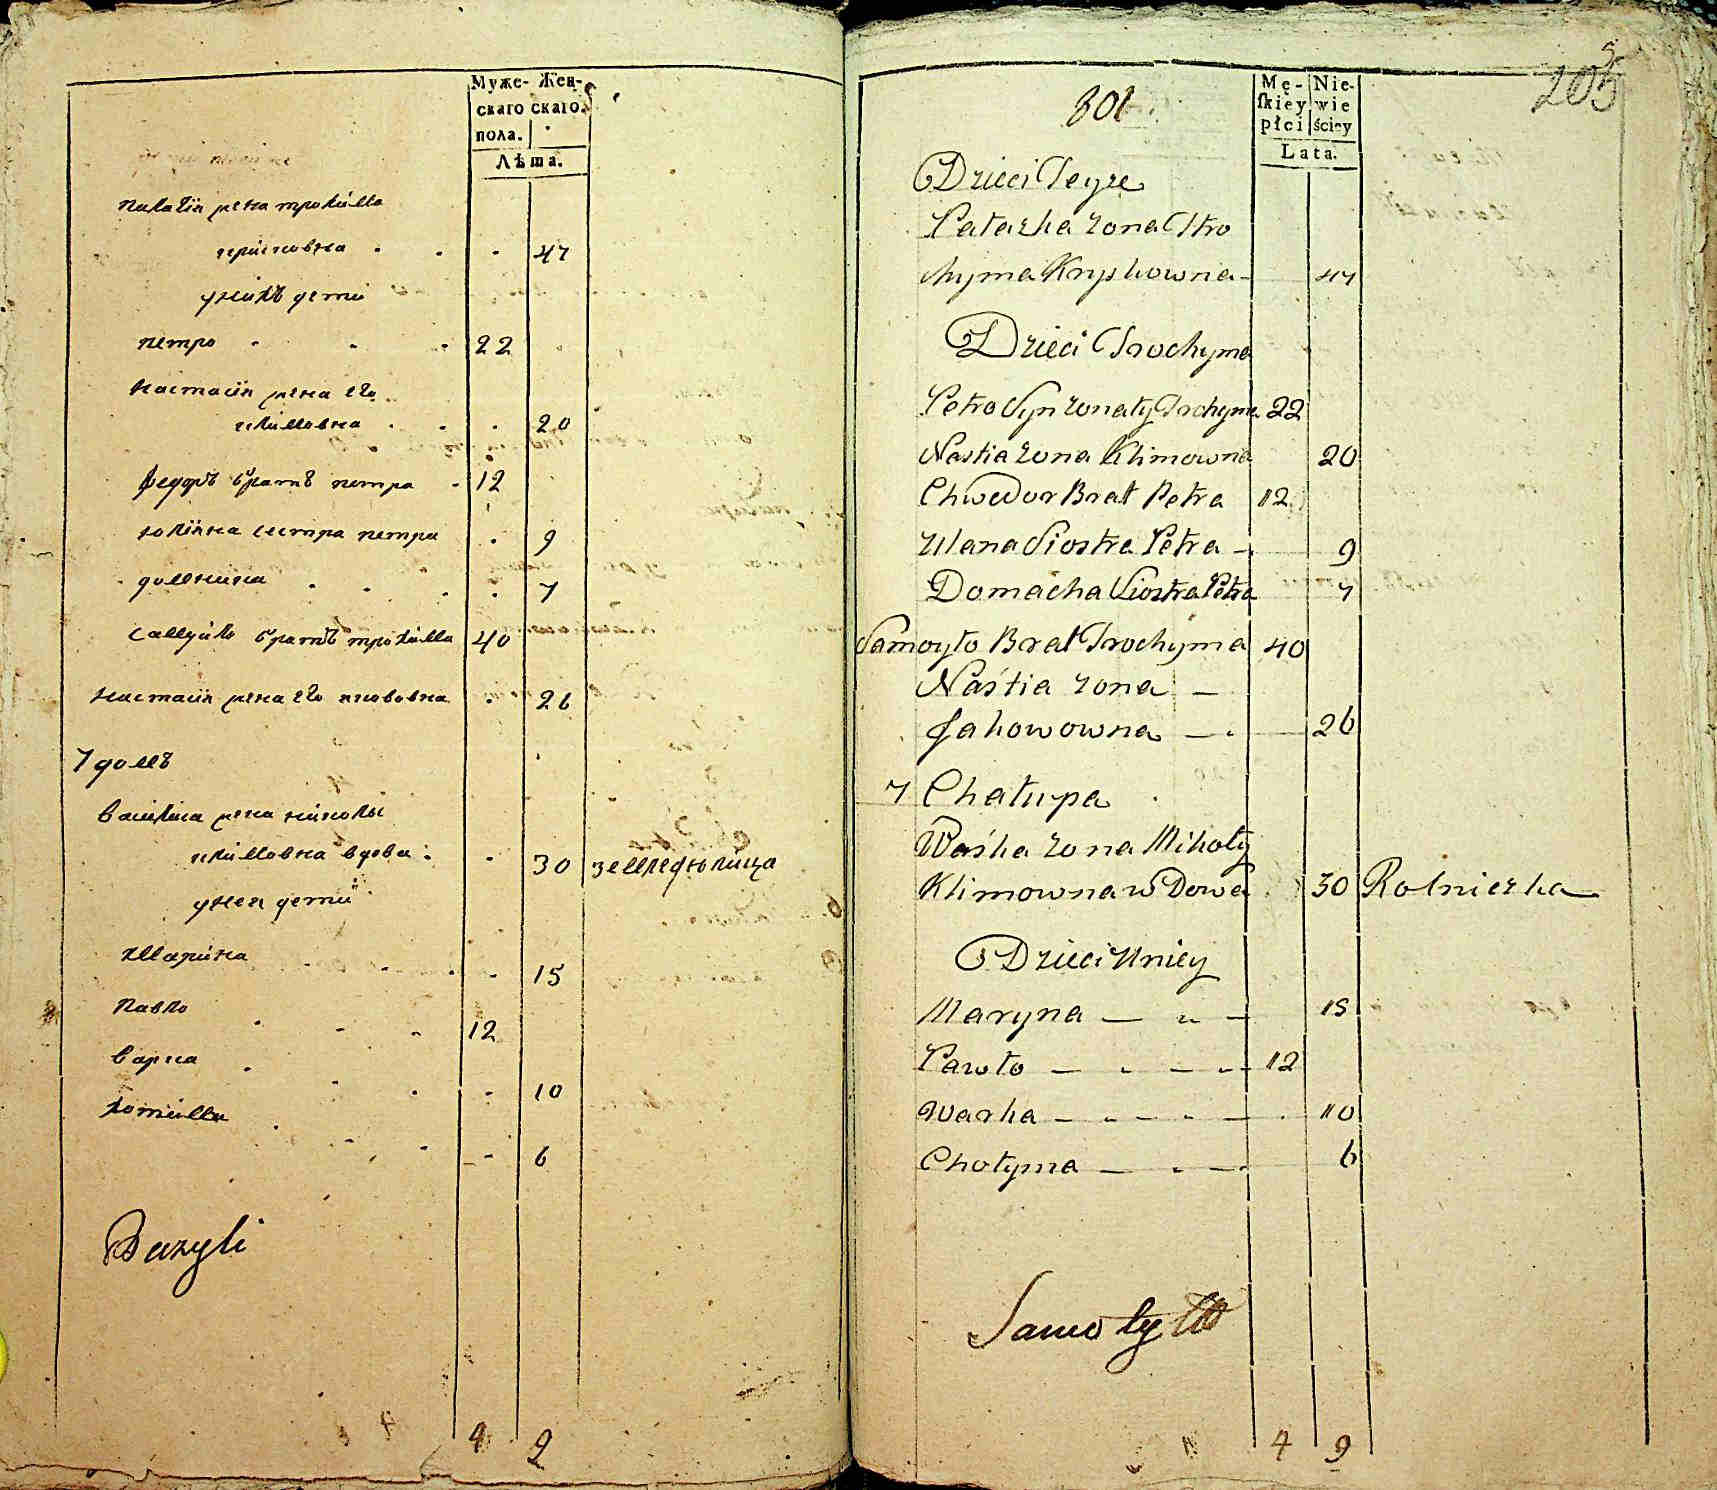 Муже- Жен-
скаго скаго.
пола.
Лѣта.
палагiя жена трохима
криковна 47
унихъ дети
петро 22
настасiя жена его
климовна 20
федоръ братъ петра 12
юлiяна сестра петра 9
домникiа 7
самуйло братъ трохима 40
настасiя жена его якововна 26
7 домъ
василиса жена николы
климовна вдова 30 земледѣлица
унея дети
марина 15
павло 12
варка 10
хотима 6
Bazyli
4 9
801
205
Mę- Nie-
skiey wie
płci ściey
Lata.
Dzieci Teyże
Pałazka zona Tro
chyma Kryskowna 47
Dzieci Trochyma
Petro Syn zonaty Trochyma 22
Nastia zona Klimowna 20
Chwedor Brat Petra 12
Ulana Siostra Petra 9
Domacha Siostra Petra 7
Samoyło Brat Trochyma 40
Naśtia zona
Jakowowna 26
7 Chałupa
Waśka zona Mikoły
Klimowna wDowa 30 Rolniczka
Dzieci Uniey
Maryna 15
Pawło 12
Warka 10
Chotyma 6
4 9